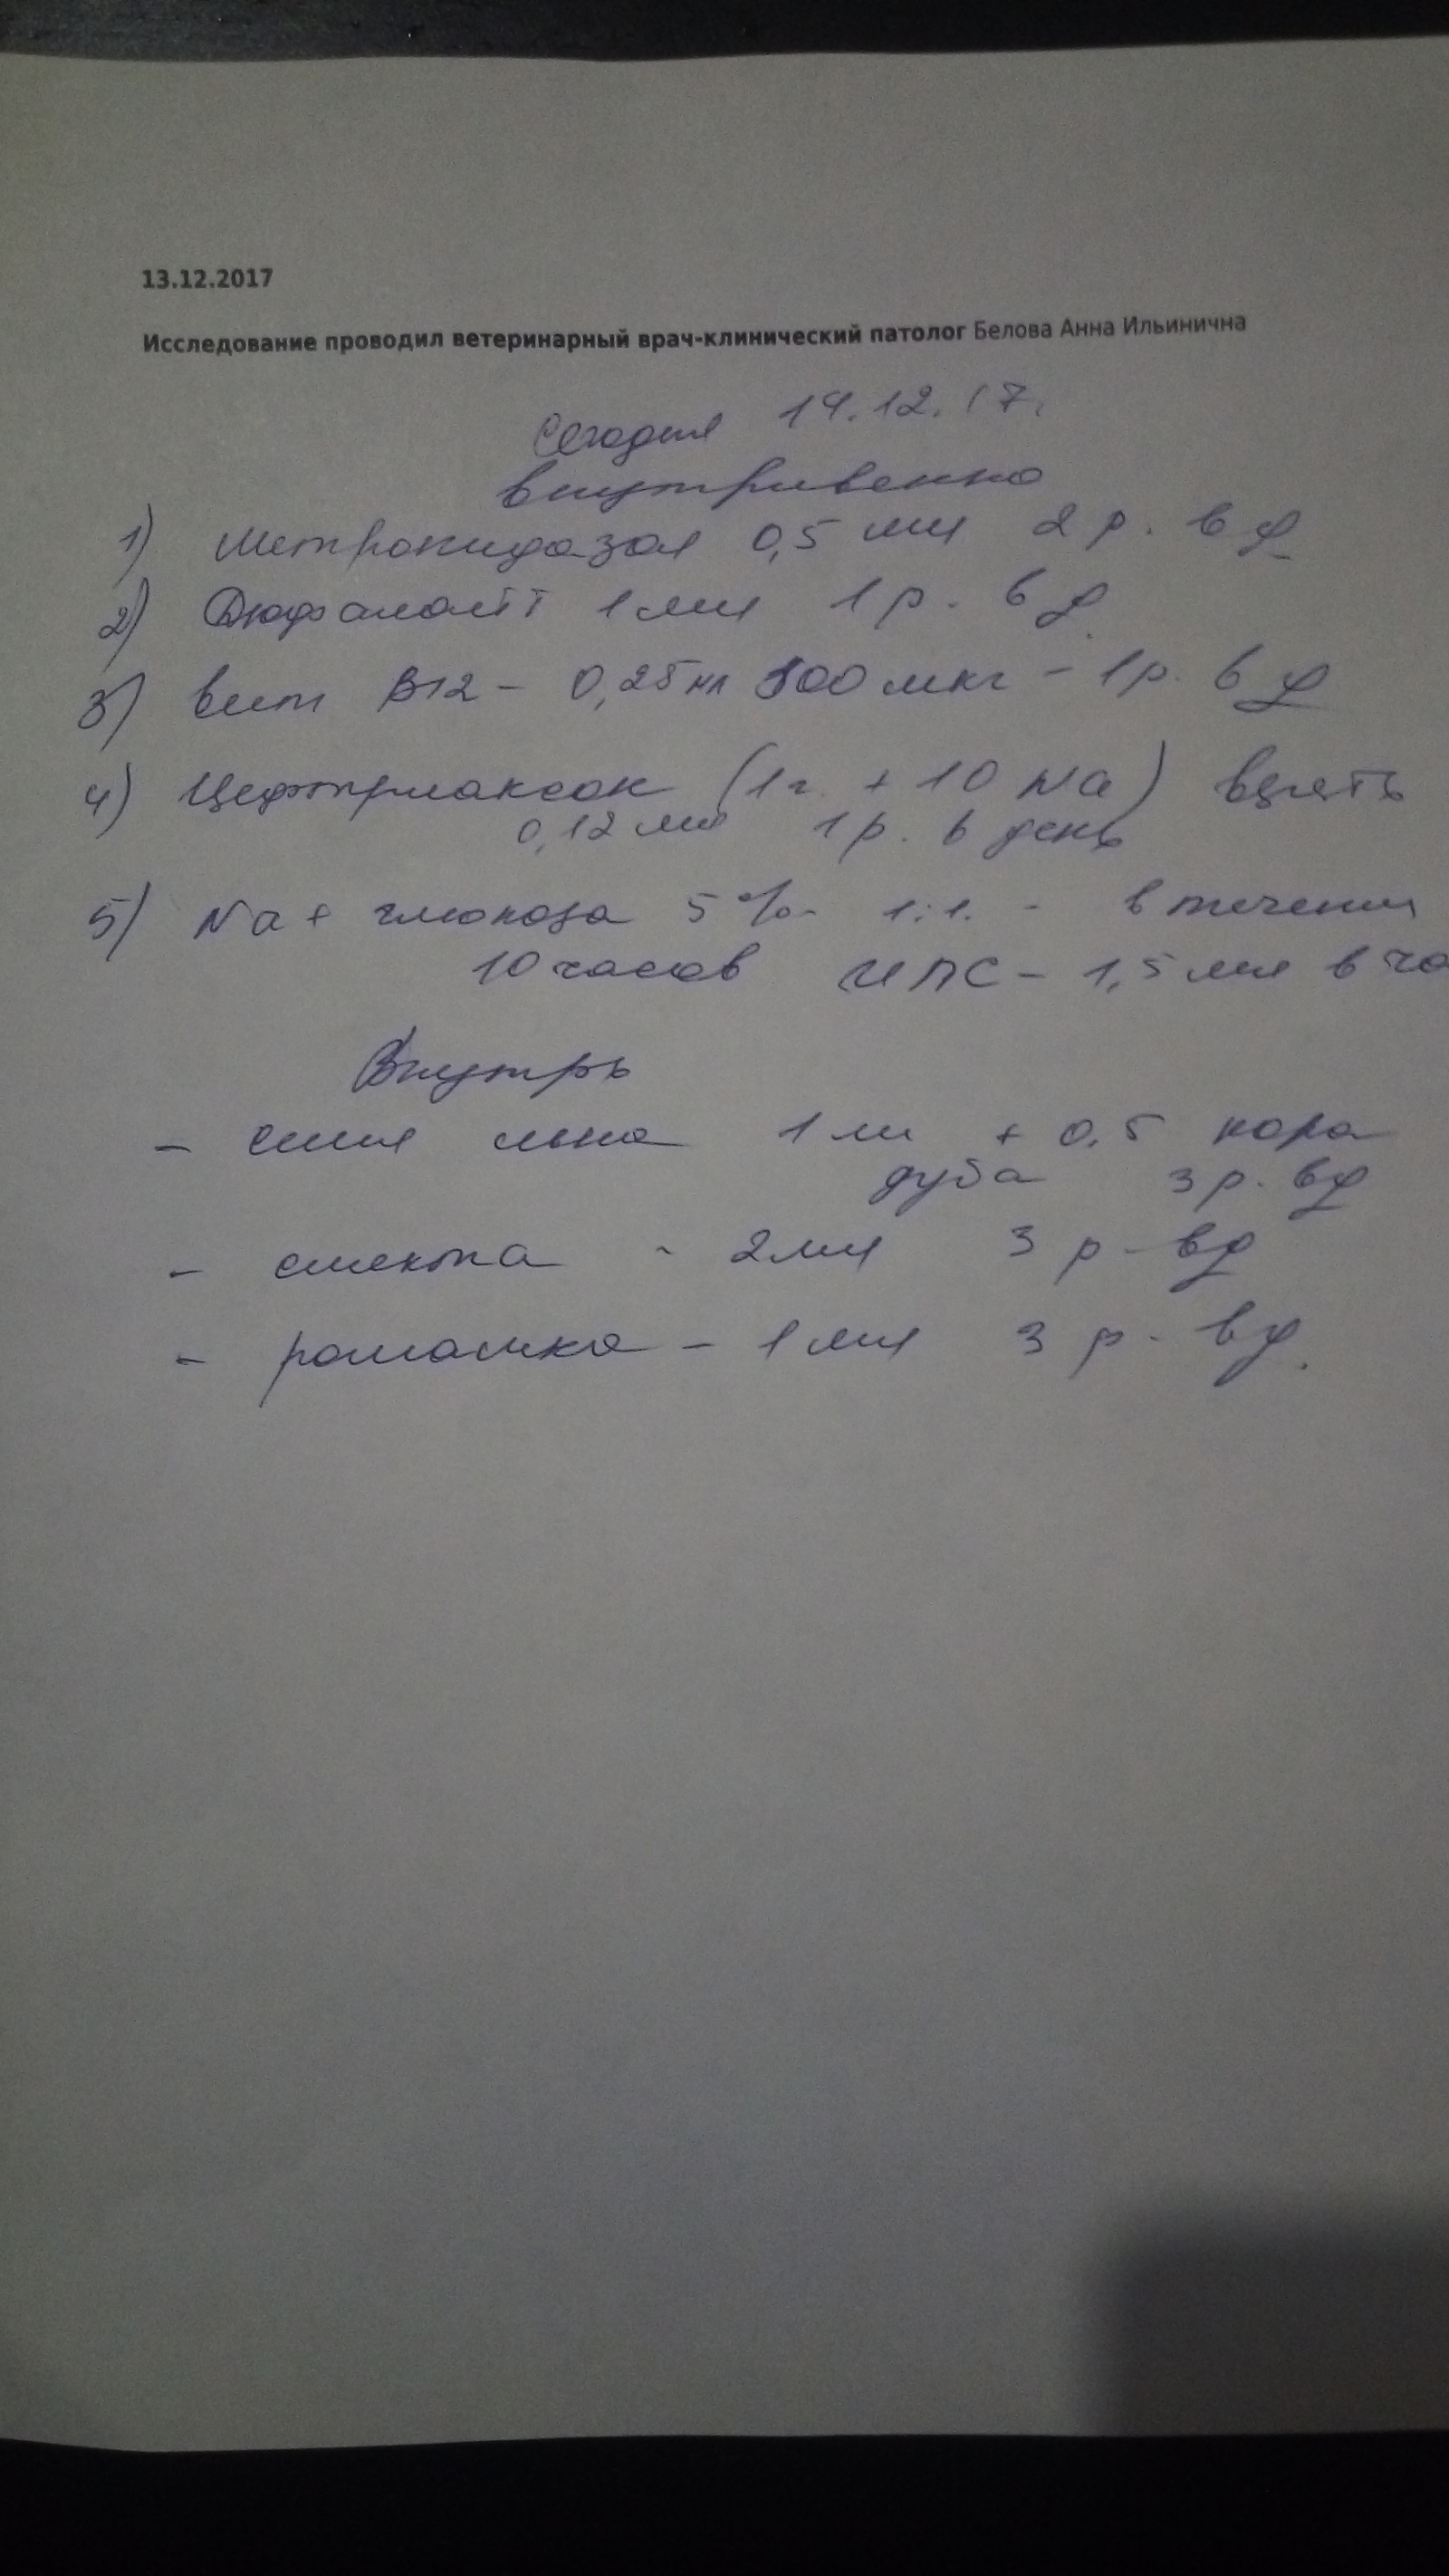 13.12.2017
Исследование проводил ветеринарный врач-клинический патолог Белова Анна Ильинична
Сегодня 14.12.17.
внутривенно
1) Метронидазол 0,5 мл 2 р. в д
2) Дюфалайт 1 мл 1 р. в д.
3) вит В12 - 0,25 мл 500 мкг - 1 р. в д
4) Цефтриаксон (1 г. + 10 Na) взять
0,12 мл 1 р. в день
5) Na + глюкоза 5% - 1:1. - в течении
10 часов ИПС - 1,5 мл в ча
Внутрь
- семя льна 1 мл + 0,5 кора
дуба 3 р. вд
- смекта - 2 мл 3 р - вд
- ромашка - 1 мл 3 р - вд.